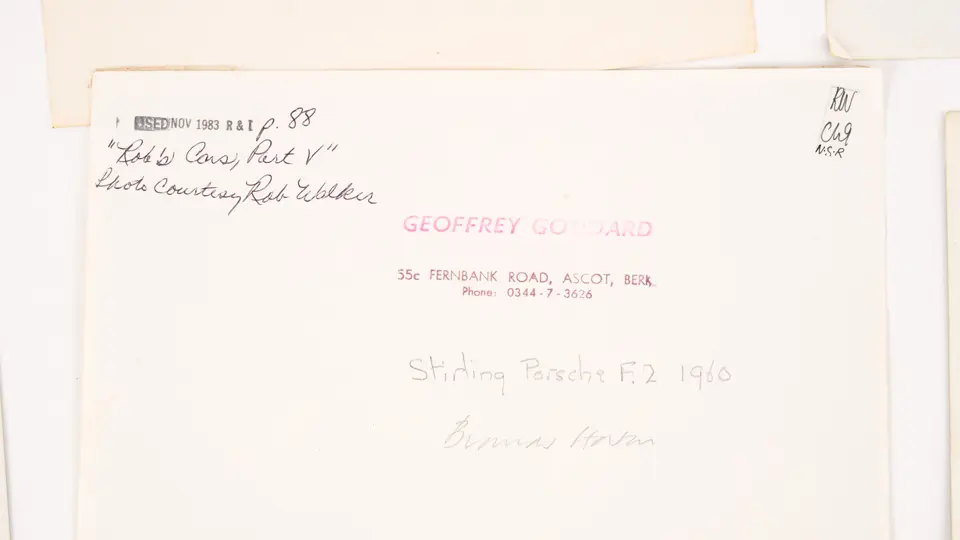 USED NOV 1983 R & T p. 88
"Rob's Cars, Part V"
Photo Courtesy Rob Walker
RW
Ch9
N.S.R
GEOFFREY GODDARD
55c FERNBANK ROAD, ASCOT, BERK
Phone: 0344-7-3626
Stirling Porsche F.2 1960